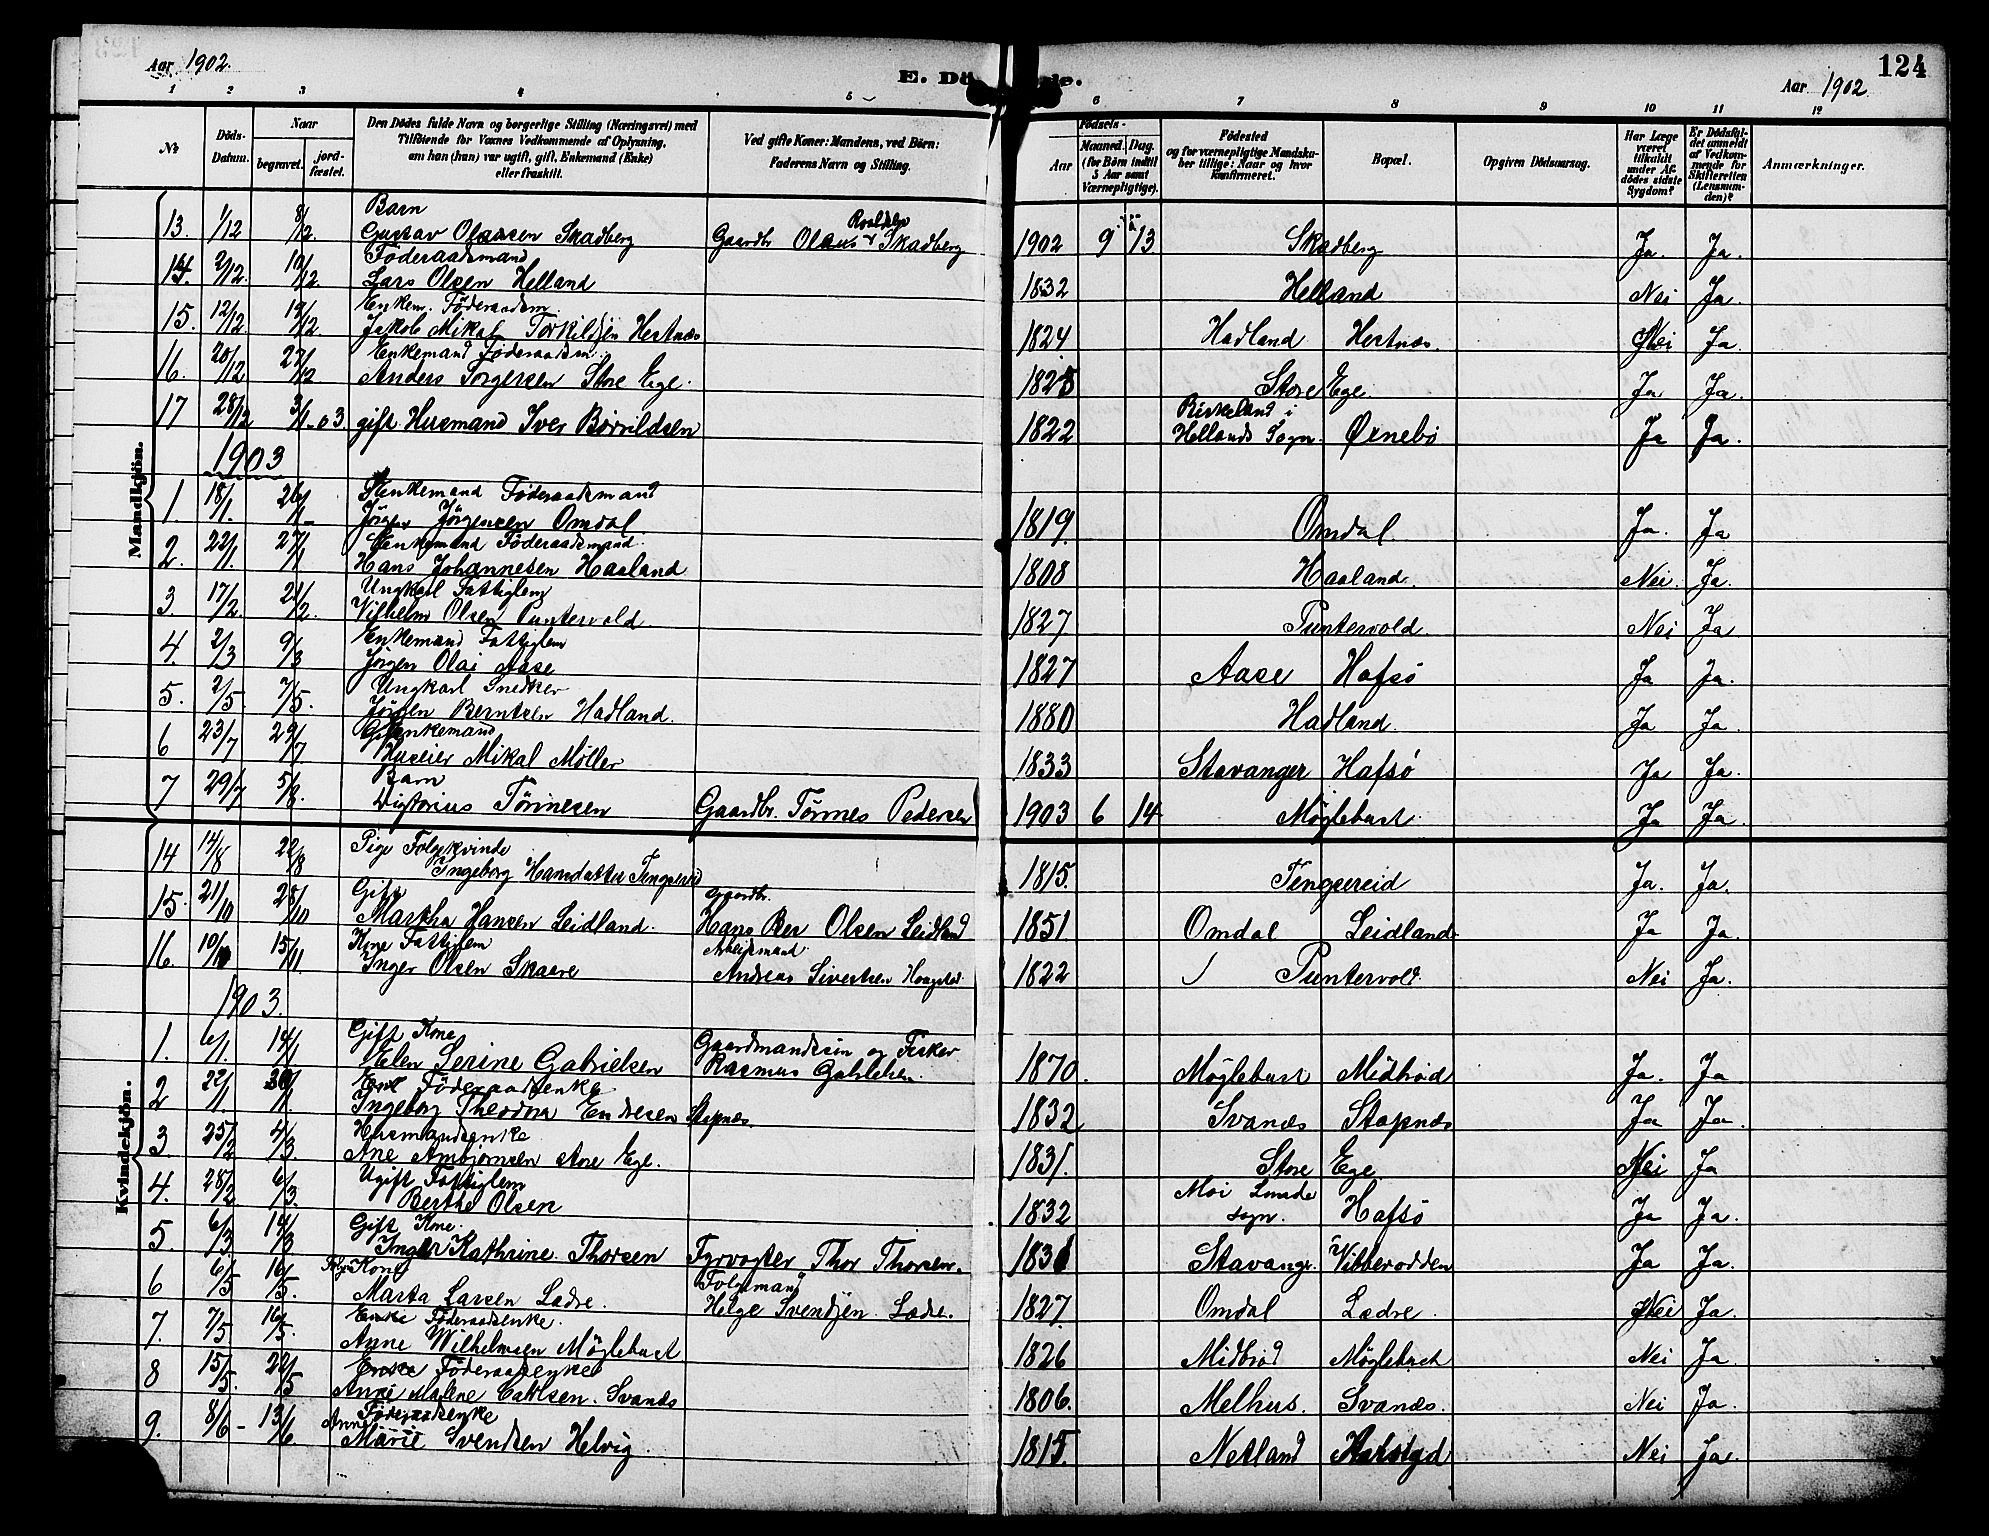 Aar 1902.
E. Dö de.
124
Aar 1902
1 2 3 4 5 6 7 8 9 10 11 12
No
Döds-Datum.
Naar
begravet.
jord-fæstet.
Den Dödes fulde Navn og borgerlige Stilling (Næringsvei) med
Tilföiende for Voxnes Vedkommende af Oplysning,
om han (hun) var ugift, gift, Enkemand (Enke)
eller fraskilt.
Ved gifte Koner: Mandens, ved Börn:
Faderens Navn og Stilling.
Födsels-
Aar
Maaned. Dag.
(for Börn indtil
5 Aar samt
Værnepligtige).
Födested
og for værnepligtige Mandska-
ber tillige: Naar og hvor
konfirmeret.
Bopæl.
Opgiven Dödsaarsag.
Har Læge
været
tilkaldt
under Af-
dödes sidste
Sygdom?
Er Dödsfal-
det anmeldt
af Vedkom-
mende for
Skifteretten
(Lensman-
den)?
Anmærkninger.
Mandkjön.
13. 1/12 8/12. Barn
Gustav Olausen Skadberg Gaardbr Olaus Roaldsen Skadberg 1902 9 13. Skadberg Ja. Ja.
14. 2/12. 10/12. Føderaadsmand
Lars Olsen Helland 1832 Helland Nei Ja.
15. 12/12 19/12. Enkem. Føderaadsm
Jakob Mikal Torkildsen Hestnæs 1824 Hadland Hestnæs. Nei Ja.
16. 20/12 27/12 Enkemand Føderaadsm.
Anders Torgersen Store Ege. 1828 Store Ege. Ja Ja.
17 28/12 3/1-03 gift Husmand Iver Børildsen 1822 Birkeland i
Hellands Sogn. Ørnebø Ja Ja.
1903
1. 18/1. 26/1- Enkemand Føderaadsmand
Jörgen Jörgensen Omdal 1819. Omdal. Ja. Ja
2. 22/1. 27/1 Enkemand Føderaadsmand.
Hans Johannesen Haaland 1808 Haaland. Nei. Ja.
3. 17/2. 21/2. Ungkarl Fattiglem
Vilhelm Olsen Puntervold 1827 Puntervold. Nei Ja
4. 2/3 9/3 Enkemand Fattiglem
Jörgen Olai Aase 1827 Aase Hafsö Ja Ja.
5. 2/5. 7/5. Ungkarl Snedker
Jörgen Berntsen Hadland. 1880 Hadland. Ja Ja
6 23/7 29/7 Enkemand
Huseier Mikal Møller 1833 Stavanger Hafsø Ja Ja.
7 29/7 5/8. Barn
Tønnesen Gaardbr. Tønnes Pedersen 1903 6 14 Møglebust. Ja Ja.
Kvindekjön.
14 14/8 22/8 Pige Folgekvinde
Ingeborg Hansdatter Tengsereid 1815. Tengsereid Ja. Ja.
15. 21/10 28/10 Gift
Martha Hansen Leidland. Gaardbr.
Hans Olsen Leidland 1851. Omdal Leidland. Ja Ja.
16. 10/11 15/11. Kone Fattiglem
Inger Olsen Skaare Arbeidsmand
Andreas Sivertsen 1822 Puntervold. Nei Ja.
1903.
1. 6/1. 14/1 Gift Kone
Elen Serine Gabrielsen Gaardmandssön og Fisker.
Rasmus Gabrielsen. 1870. Møglebust Midbrød Ja. Ja
2 22/1. 30/1. Føderaadsenke
Ingeborg Theodora Endresen Stapnæs. 1832 Svanæs Stapnæs Ja Ja.
3 25/2 4/3. Husmandsenke
Ane Ambjørnsen Store Ege. 1831. Store Ege Nei Ja
4. 28/2. 6/3. Ugift Fattiglem
Berthe Olsen 1832 Moi Lunde
sogn. Hafsø Ja Ja.
5. 6/3. 14/3 Gift Kone.
Inger Kathrine Thorsen Fyrvogter Thor Thorsen. 1831 Stavanger Vibberodden Ja Ja.
6 6/5 16/5. Folge Kone
Marta Larsen Lædre. Folgemand
Helge Svendsen Lædre. 1827. Omdal Lædre. Nei Ja.
7. 7/5 16/5. Enke Føderaadsenke.
Anne Wilhelmsen Møglebust 1826 Midbrød Møglebust Nei Ja.
8 15/5. 22/5 Enke Føderaadsenke
Anne Malene Carlsen. Svanæs 1806. Melhus. Svanæs. Nei Ja.
9. 8/6- 13/6 Føderaadsenke
Anne Marie Svendsen Helvig. 1815. Netland Nei Ja.